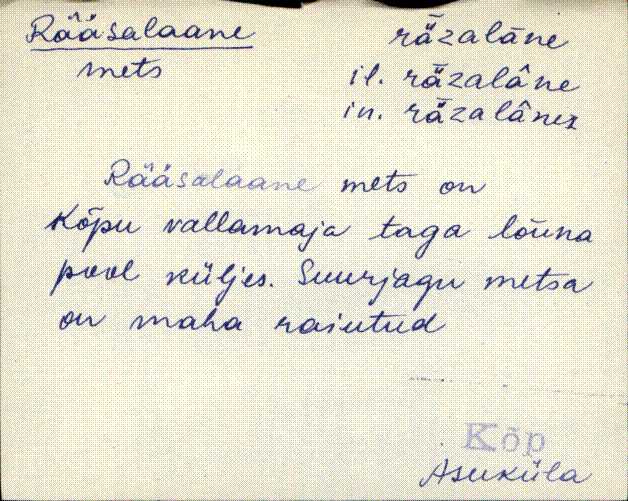 Rääsalaane
mets
rǟzalāne
il. rǟzalâne
in. rǟzalânez
Rääsalaane mets on
Kõpu vallamaja taga lõuna
pool küljes. Suurjagu metsa
on maha raiutud
Kõp
Asuküla